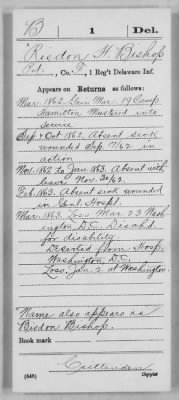 B 1 Del.
Risdon H. Bishop
Pvt., Co. , 1 Reg't Delaware Inf.
Appears on Returns as follows:
Mar. 1862. Gain Mar. 19 Camp
Hamilton Mustered into
service
Sep & Oct 1862. Absent sick
wounded Sep. 17/62 in
action
Nov. 1862 to Jan. 1863. Absent with
leave Nov. 30/62.
Feb. 1863. Absent sick wounded
in Genl. Hospl.
Mar. 1863. Loss. Mar. 23 Wash
ington D.C. Disch'd.
for disability
Deserted from Hosp.
Washington D.C.
Loss. Jan. 2. at Washington.
Name also appears as
Bisdon Bishop.
Book mark
Crittenden
(646) Copyist